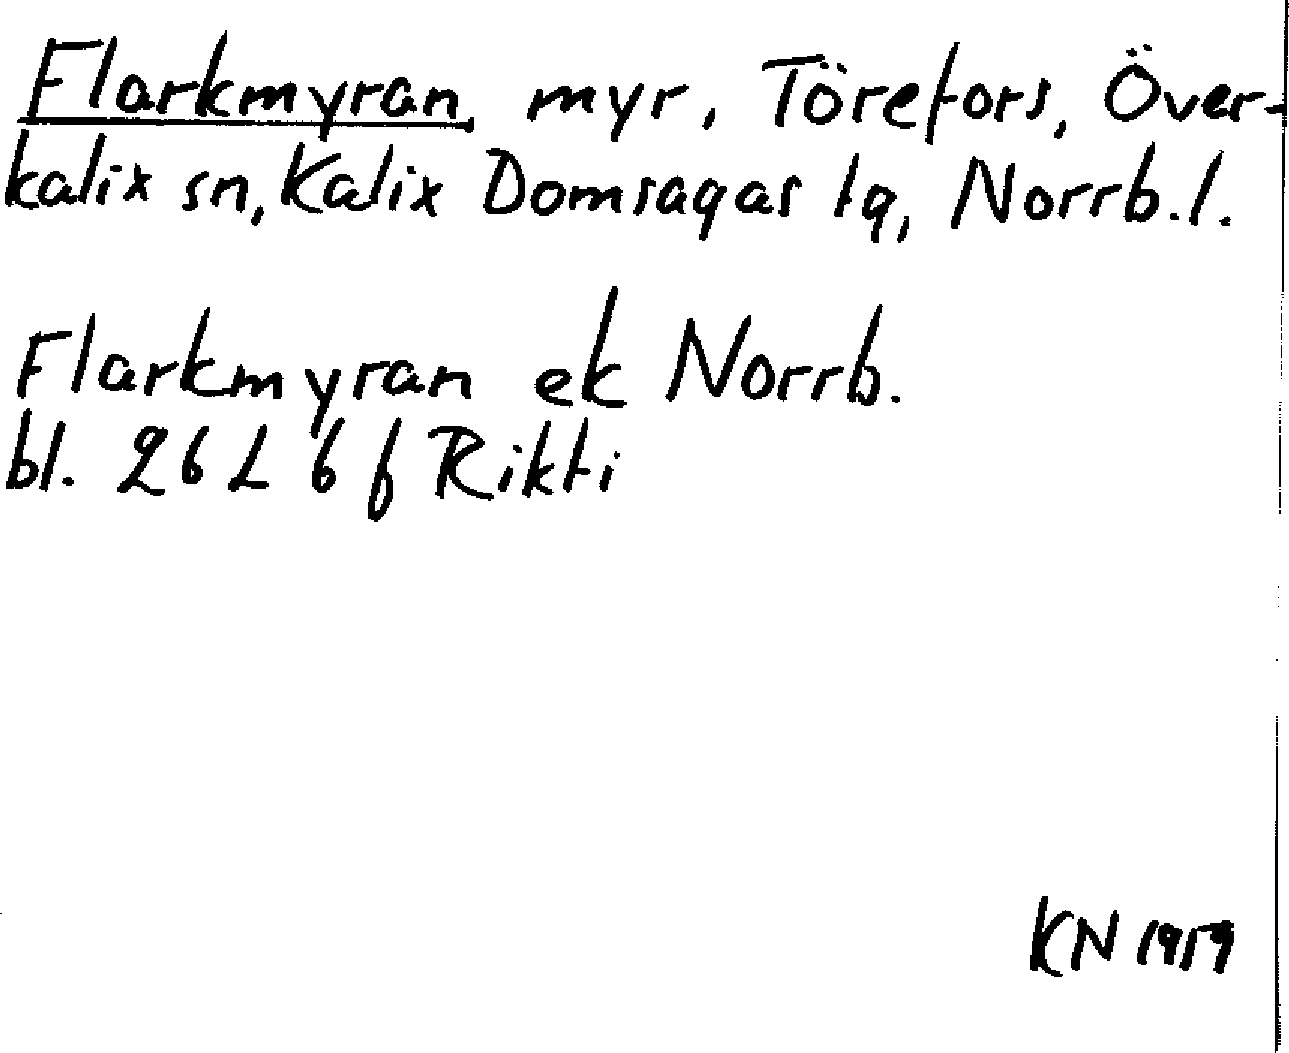 Flarkmyran, myr, Törefors, Över-
kalix sn, Kalix Domsagas tg, Norrb.l.
Flarkmyran ek Norrb.
bl. 26 L 6 f Rikti
KN 1959